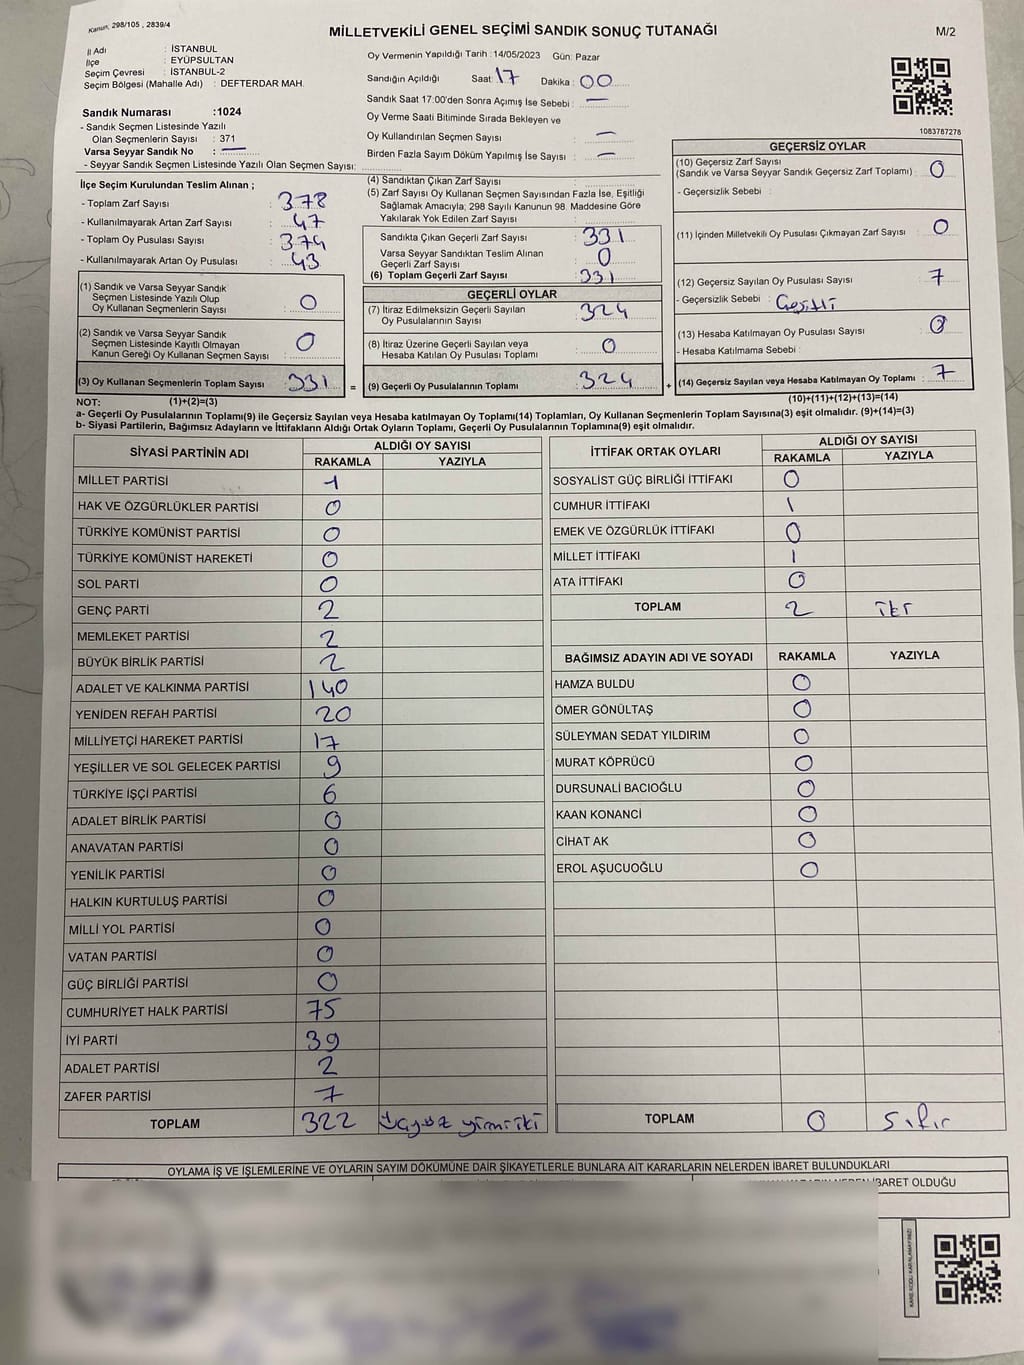 Kanun, 298/105 , 2839/4
MİLLETVEKİLİ GENEL SEÇİMİ SANDIK SONUÇ TUTANAĞI
M/2
İl Adı : İSTANBUL
İlçe : EYÜPSULTAN
Seçim Çevresi : İSTANBUL-2
Seçim Bölgesi (Mahalle Adı) : DEFTERDAR MAH.
Sandık Numarası :1024
- Sandık Seçmen Listesinde Yazılı
Olan Seçmenlerin Sayısı : 371
Varsa Seyyar Sandık No : —
- Seyyar Sandık Seçmen Listesinde Yazılı Olan Seçmen Sayısı:
Oy Vermenin Yapıldığı Tarih : 14/05/2023 Gün: Pazar
Sandığın Açıldığı Saat: 17 Dakika : 00
Sandık Saat 17:00'den Sonra Açımış İse Sebebi : —
Oy Verme Saati Bitiminde Sırada Bekleyen ve
Oy Kullandırılan Seçmen Sayısı : —
Birden Fazla Sayım Döküm Yapılmış İse Sayısı : —
1083787278
İlçe Seçim Kurulundan Teslim Alınan ;
- Toplam Zarf Sayısı : 378
- Kullanılmayarak Artan Zarf Sayısı : 47
- Toplam Oy Pusulası Sayısı : 374
- Kullanılmayarak Artan Oy Pusulası : 43
(1) Sandık ve Varsa Seyyar Sandık
Seçmen Listesinde Yazılı Olup
Oy Kullanan Seçmenlerin Sayısı : 0
(2) Sandık ve Varsa Seyyar Sandık
Seçmen Listesinde Kayıtlı Olmayan
Kanun Gereği Oy Kullanan Seçmen Sayısı : 0
(3) Oy Kullanan Seçmenlerin Toplam Sayısı : 331 =
(4) Sandıktan Çıkan Zarf Sayısı :
(5) Zarf Sayısı Oy Kullanan Seçmen Sayısından Fazla İse, Eşitliği
Sağlamak Amacıyla; 298 Sayılı Kanunun 98. Maddesine Göre
Yakılarak Yok Edilen Zarf Sayısı :
Sandıkta Çıkan Geçerli Zarf Sayısı : 331
Varsa Seyyar Sandıktan Teslim Alınan
Geçerli Zarf Sayısı : 0
(6) Toplam Geçerli Zarf Sayısı : 331
GEÇERLİ OYLAR
(7) İtiraz Edilmeksizin Geçerli Sayılan
Oy Pusulalarının Sayısı : 324
(8) İtiraz Üzerine Geçerli Sayılan veya
Hesaba Katılan Oy Pusulası Toplamı : 0
(9) Geçerli Oy Pusulalarının Toplamı : 324 +
GEÇERSİZ OYLAR
(10) Geçersiz Zarf Sayısı
(Sandık ve Varsa Seyyar Sandık Geçersiz Zarf Toplamı) : 0
- Geçersizlik Sebebi :
(11) İçinden Milletvekili Oy Pusulası Çıkmayan Zarf Sayısı : 0
(12) Geçersiz Sayılan Oy Pusulası Sayısı : 7
- Geçersizlik Sebebi : Çeşitli
(13) Hesaba Katılmayan Oy Pusulası Sayısı : 0
- Hesaba Katılmama Sebebi :
(14) Geçersiz Sayılan veya Hesaba Katılmayan Oy Toplamı : 7
NOT: (1)+(2)=(3) (10)+(11)+(12)+(13)=(14)
a- Geçerli Oy Pusulalarının Toplamı(9) ile Geçersiz Sayılan veya Hesaba katılmayan Oy Toplamı(14) Toplamları, Oy Kullanan Seçmenlerin Toplam Sayısına(3) eşit olmalıdır. (9)+(14)=(3)
b- Siyasi Partilerin, Bağımsız Adayların ve İttifakların Aldığı Ortak Oyların Toplamı, Geçerli Oy Pusulalarının Toplamına(9) eşit olmalıdır.
SİYASİ PARTİNİN ADI ALDIĞI OY SAYISI
RAKAMLA YAZIYLA
MİLLET PARTİSİ 1
HAK VE ÖZGÜRLÜKLER PARTİSİ 0
TÜRKİYE KOMÜNİST PARTİSİ 0
TÜRKİYE KOMÜNİST HAREKETİ 0
SOL PARTİ 0
GENÇ PARTİ 2
MEMLEKET PARTİSİ 2
BÜYÜK BİRLİK PARTİSİ 2
ADALET VE KALKINMA PARTİSİ 140
YENİDEN REFAH PARTİSİ 20
MİLLİYETÇİ HAREKET PARTİSİ 17
YEŞİLLER VE SOL GELECEK PARTİSİ 9
TÜRKİYE İŞÇİ PARTİSİ 6
ADALET BİRLİK PARTİSİ 0
ANAVATAN PARTİSİ 0
YENİLİK PARTİSİ 0
HALKIN KURTULUŞ PARTİSİ 0
MİLLİ YOL PARTİSİ 0
VATAN PARTİSİ 0
GÜÇ BİRLİĞİ PARTİSİ 0
CUMHURİYET HALK PARTİSİ 75
İYİ PARTİ 39
ADALET PARTİSİ 2
ZAFER PARTİSİ 7
TOPLAM 322 Üçyüz yirmi iki
İTTİFAK ORTAK OYLARI ALDIĞI OY SAYISI
RAKAMLA YAZIYLA
SOSYALİST GÜÇ BİRLİĞİ İTTİFAKI 0
CUMHUR İTTİFAKI 1
EMEK VE ÖZGÜRLÜK İTTİFAKI 0
MİLLET İTTİFAKI 1
ATA İTTİFAKI 0
TOPLAM 2 iki
BAĞIMSIZ ADAYIN ADI VE SOYADI RAKAMLA YAZIYLA
HAMZA BULDU 0
ÖMER GÖNÜLTAŞ 0
SÜLEYMAN SEDAT YILDIRIM 0
MURAT KÖPRÜCÜ 0
DURSUNALİ BACIOĞLU 0
KAAN KONANCİ 0
CİHAT AK 0
EROL AŞUCUOĞLU 0
TOPLAM 0 Sıfır
OYLAMA İŞ VE İŞLEMLERİNE VE OYLARIN SAYIM DÖKÜMÜNE DAİR ŞİKAYETLERLE BUNLARA AİT KARARLARIN NELERDEN İBARET BULUNDUKLARI
İBARET OLDUĞU